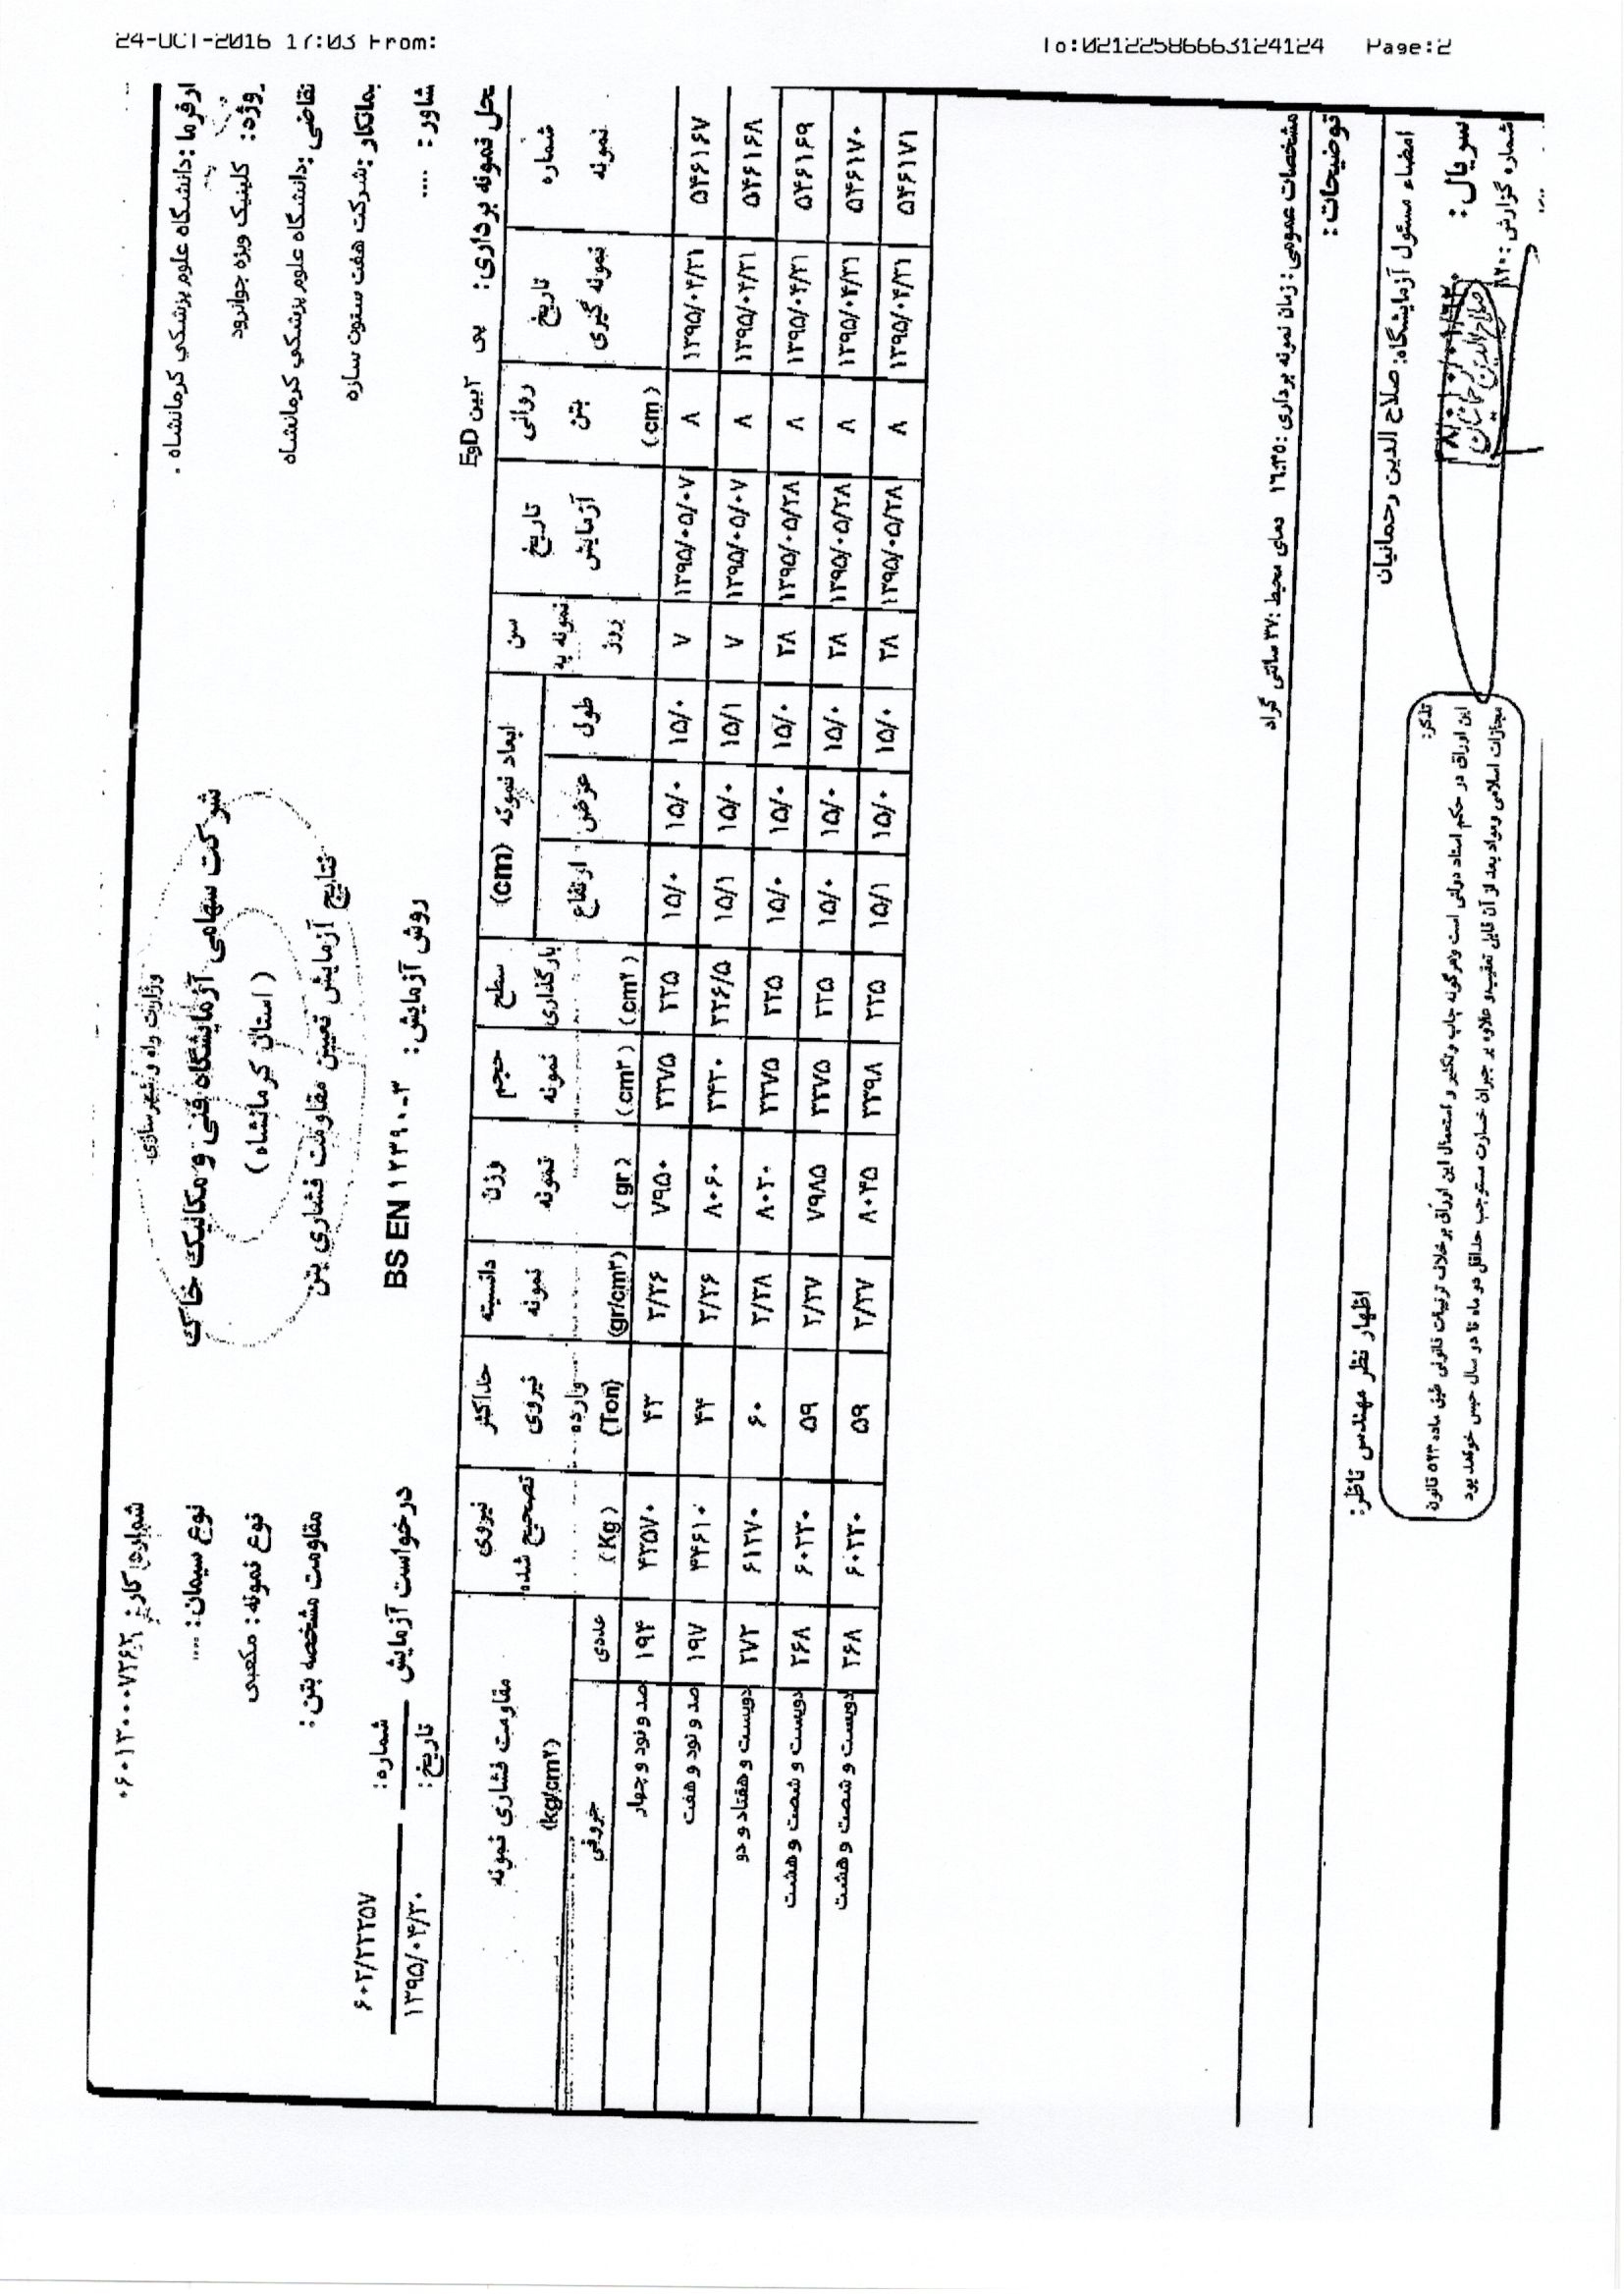 24-OCT-2016 17:03 From: To:02122586663124124 Page:2
وزارت راه و شهرسازی
شرکت سهامی آزمایشگاه فنی و مکانیک خاک
(استان کرمانشاه)
نتایج آزمایش تعیین مقاومت فشاری بتن
روش آزمایش: BS EN ۱۲۳۹۰-۳
کارفرما: دانشگاه علوم پزشکی کرمانشاه .
پروژه: کلینیک ویژه جوانرود
تقاضی: دانشگاه علوم پزشکی کرمانشاه
پیمانکار: شرکت هفت ستون سازه
شاور: ....
محل نمونه برداری: پی آیین EوD
شماره کار: ۰۶۰۱۳۰۰۰۷۲۶۲
نوع سیمان: ....
نوع نمونه: مکعبی
مقاومت مشخصه بتن:
درخواست آزمایش شماره: ۶۰۲/۲۲۲۵۷
تاریخ: ۱۳۹۵/۰۴/۲۰
شماره نمونه | تاریخ نمونه گیری | روانی بتن (cm) | تاریخ آزمایش | سن نمونه به روز | ابعاد نمونه (cm) طول عرض ارتفاع | سطح بارگذاری (cm۲) | حجم نمونه (cm۳) | وزن نمونه (gr) | دانسیته نمونه (gr/cm۳) | حداکثر نیروی وارده (Ton) | نیروی تصحیح شده (Kg) | مقاومت فشاری نمونه (kg/cm۲) عددی حروفی
۵۴۶۱۶۷ ۱۳۹۵/۰۴/۳۱ ۸ ۱۳۹۵/۰۵/۰۷ ۷ ۱۵/۰ ۱۵/۰ ۱۵/۰ ۲۲۵ ۳۳۷۵ ۷۹۵۰ ۲/۳۶ ۴۳ ۴۳۵۷۰ ۱۹۴ صد و نود و چهار
۵۴۶۱۶۸ ۱۳۹۵/۰۴/۳۱ ۸ ۱۳۹۵/۰۵/۰۷ ۷ ۱۵/۱ ۱۵/۰ ۱۵/۱ ۲۲۶/۵ ۳۴۲۰ ۸۰۶۰ ۲/۳۶ ۴۴ ۴۴۶۱۰ ۱۹۷ صد و نود و هفت
۵۴۶۱۶۹ ۱۳۹۵/۰۴/۳۱ ۸ ۱۳۹۵/۰۵/۲۸ ۲۸ ۱۵/۰ ۱۵/۰ ۱۵/۰ ۲۲۵ ۳۳۷۵ ۸۰۲۰ ۲/۳۸ ۶۰ ۶۱۲۷۰ ۲۷۲ دویست و هفتاد و دو
۵۴۶۱۷۰ ۱۳۹۵/۰۴/۳۱ ۸ ۱۳۹۵/۰۵/۲۸ ۲۸ ۱۵/۰ ۱۵/۰ ۱۵/۰ ۲۲۵ ۳۳۷۵ ۷۹۸۵ ۲/۳۷ ۵۹ ۶۰۲۳۰ ۲۶۸ دویست و شصت و هشت
۵۴۶۱۷۱ ۱۳۹۵/۰۴/۳۱ ۸ ۱۳۹۵/۰۵/۲۸ ۲۸ ۱۵/۰ ۱۵/۰ ۱۵/۱ ۲۲۵ ۳۳۹۸ ۸۰۴۵ ۲/۳۷ ۵۹ ۶۰۲۳۰ ۲۶۸ دویست و شصت و هشت
مشخصات عمومی: زمان نمونه برداری: ۱۶:۴۵ دمای محیط: ۳۷ سانتی گراد
توضیحات:
اظهار نظر مهندس ناظر:
امضاء مسئول آزمایشگاه: صلاح الدین رحمانیان
صلاح الدین رحمانیان
تذکر:
این اوراق در حکم اسناد دولتی است و هر گونه چاپ و تکثیر و استعمال این اوراق بر خلاف ترتیبات قانونی طبق ماده ۵۳۳ قانون
مجازات اسلامی و مواد بعد از آن قابل تعقیب و علاوه بر جبران خسارت مستوجب حداقل دو ماه تا دو سال حبس خواهد بود
سریال:
شماره گزارش: ۸۲۰